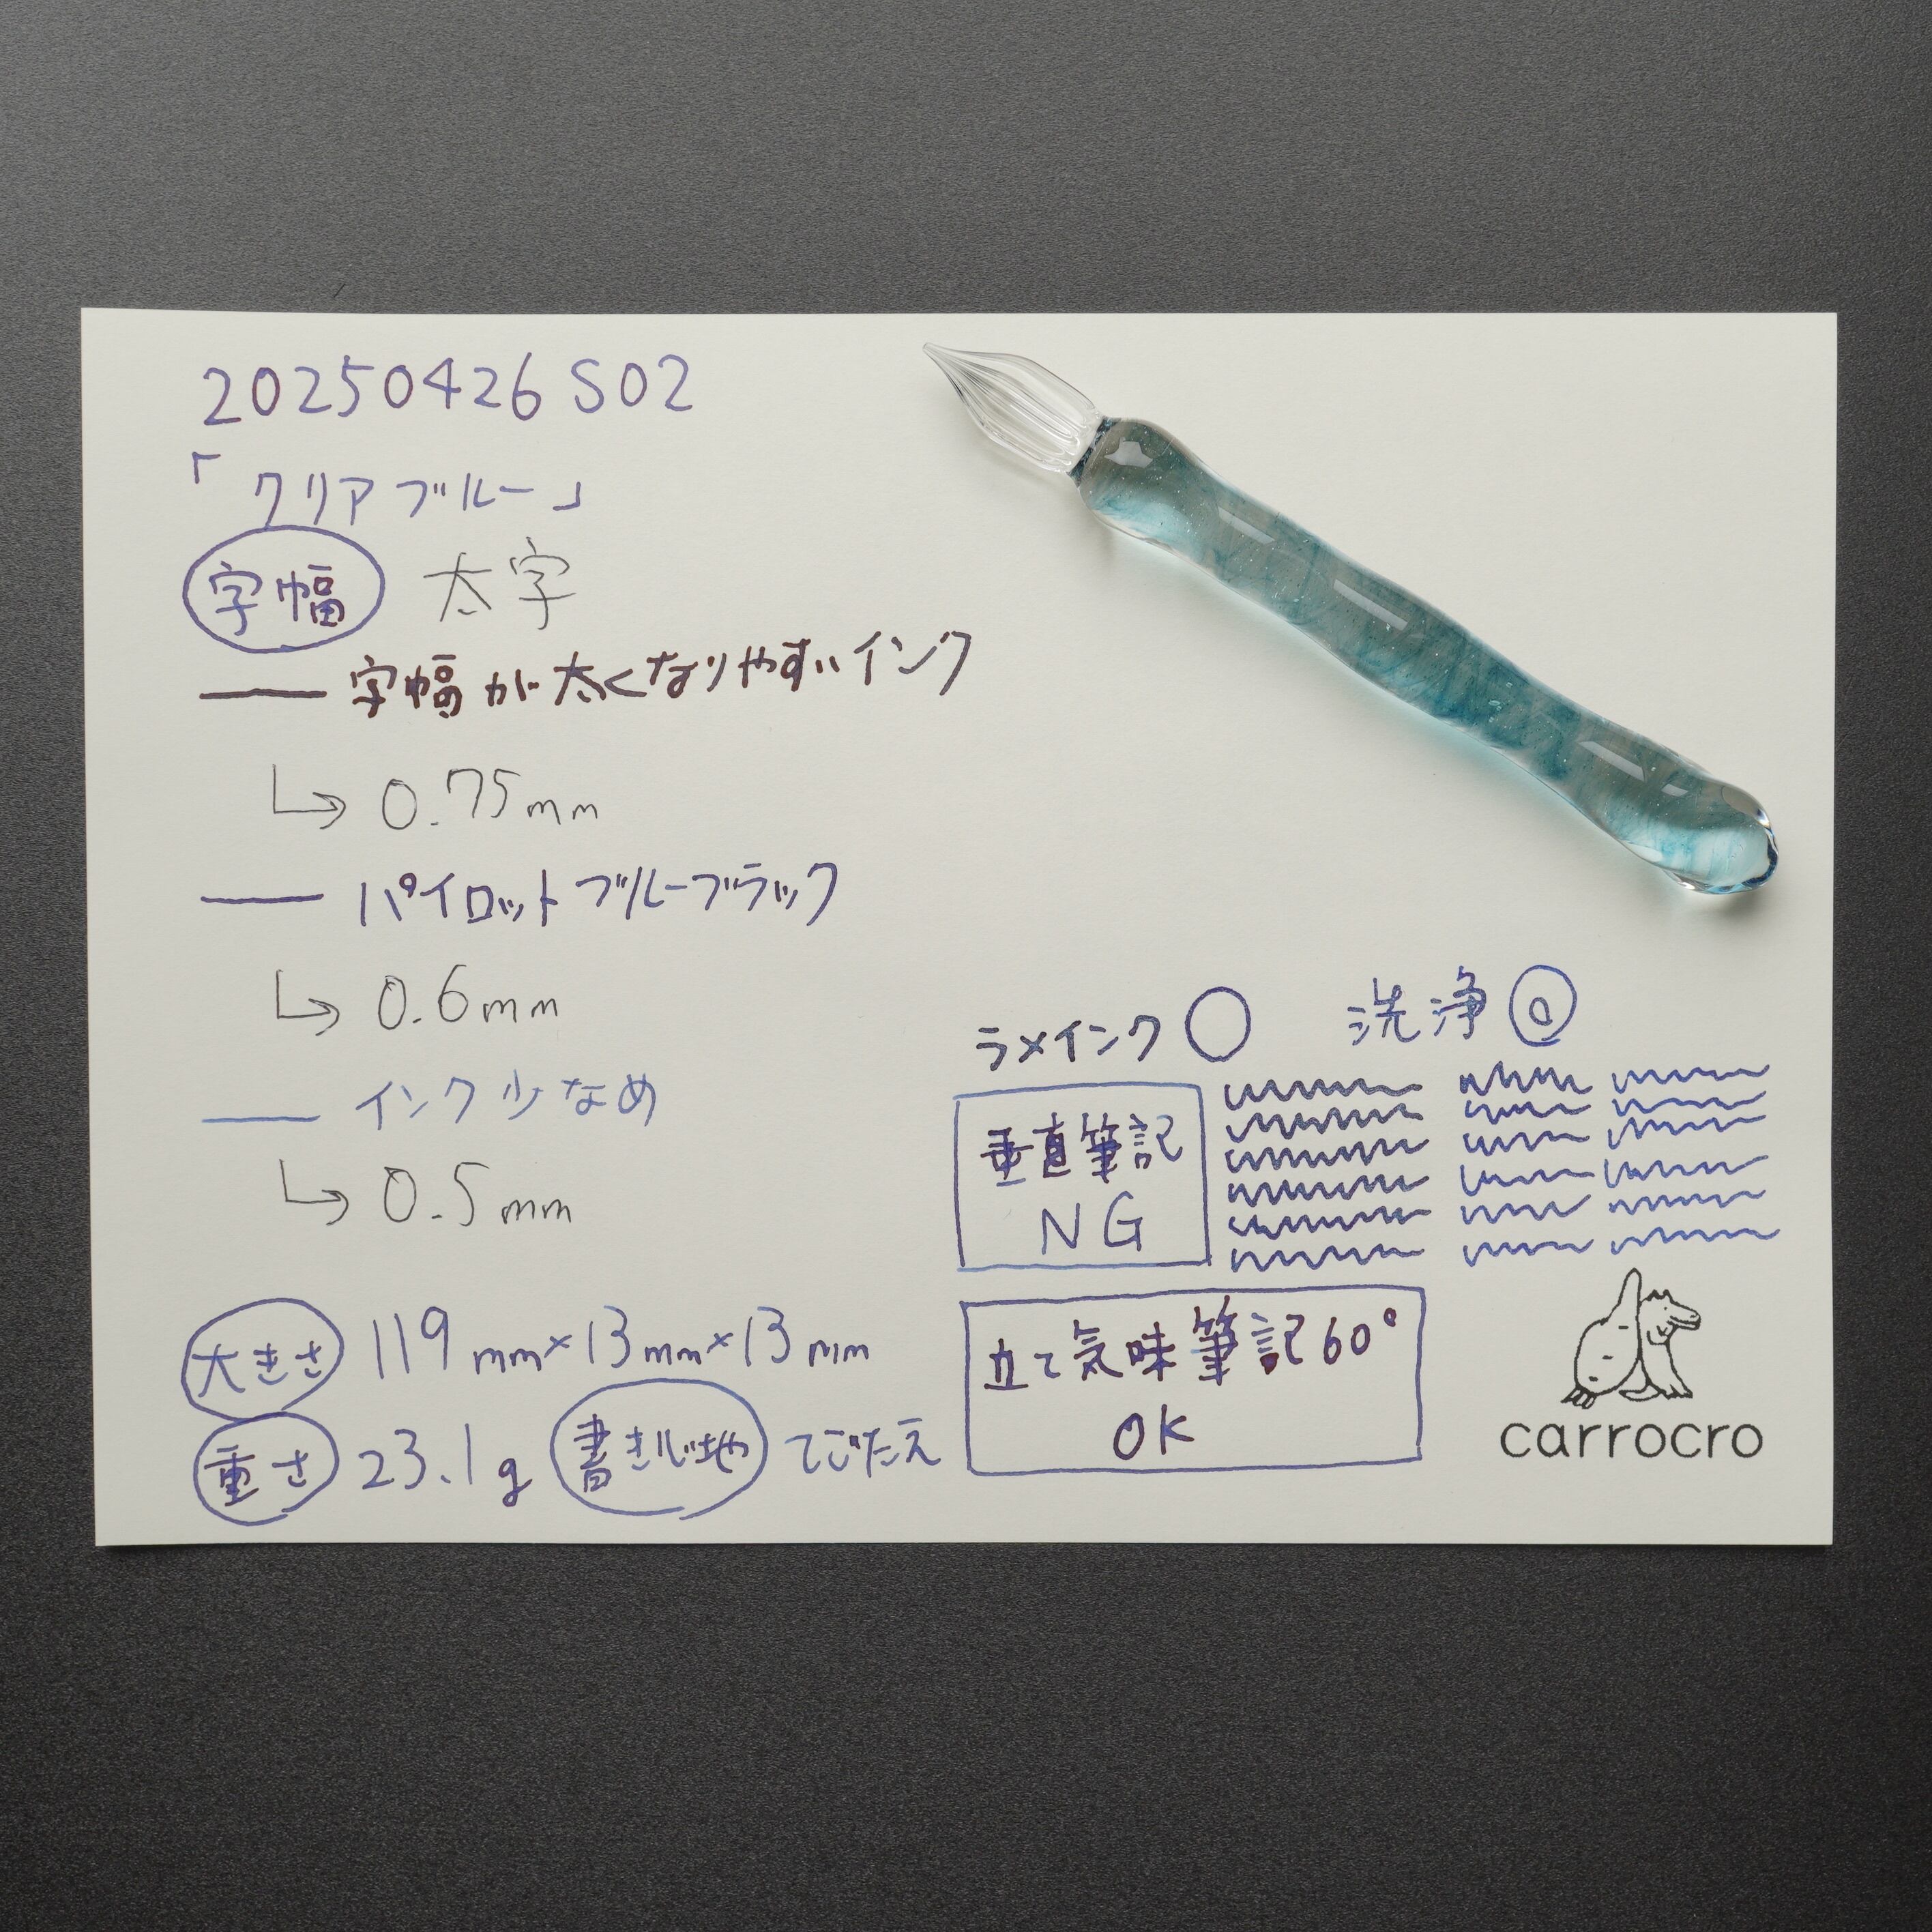 20250426 S02
「クリアブルー」
字幅 太字
字幅が太くなりやすいインク
0.75mm
パイロットブルーブラック
0.6mm
インク少なめ
0.5mm
大きさ 119mm×13mm×13mm
重さ 23.1g 書き心地 てごたえ
ラメインク ○ 洗浄 ◎
垂直筆記
NG
立て気味筆記60°
OK
carrocro